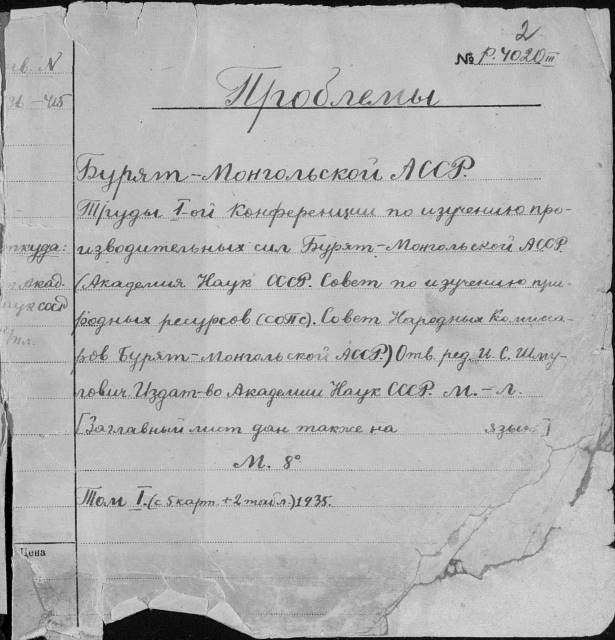 2
№ р. 4020 III
Проблемы
Бурят-Монгольской АССР.
Труды I-ой Конференции по изучению про-
изводительных сил Бурят-Монгольской АССР
(Академия Наук СССР. Совет по изучению при-
родных ресурсов (СОПС). Совет Народных Комисса-
ров Бурят-Монгольской АССР.) Отв. ред. И. С. Шпу-
лович. Издат-во Академии Наук СССР. М. – Л.
[Заглавный лист дан также на язык ]
М. 8°
Том I. (с 5 карт. + 2 табл.) 1935.
Цена